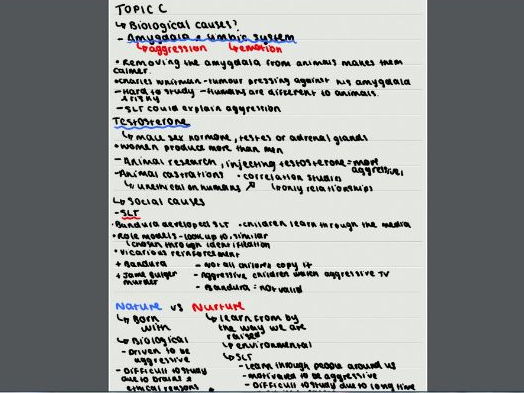 TOPIC C
↳ Biological causes?
- Amygdala + limbic system
↳ aggression ↳ emotion
• Removing the amygdala from animals makes them
calmer.
• Charles Whitman - tumour pressing against his amygdala
- Hard to study - humans are different to animals.
+ risky
- SLT could explain aggression
Testosterone
↳ male sex hormone, testes or adrenal glands
• women produce more than men
- Animal research, injecting testosterone = more
aggressive,
- Animal castrations • correlation studies
↳ unethical on humans ↗ ↳ only relationships
↳ Social causes
- SLT
• Bandura developed SLT • children learn through the media
• Role models - look up to, similar
↳ chosen through identification
• Vicarious reinforcement
+ Bandura - not all children copy it
+ James Bulger - Aggressive children watch aggressive TV
murder
- Bandura = not valid
Nature vs Nurture
↳ Born ↳ learn from by
with the way we are
raised
↳ Biological ↳ environmental
- Driven to be ↳ SLT
aggressive - learn through people around us
- Difficult to study - motivated to be aggressive
due to brains + - Difficult to study due to long time
ethical reasons